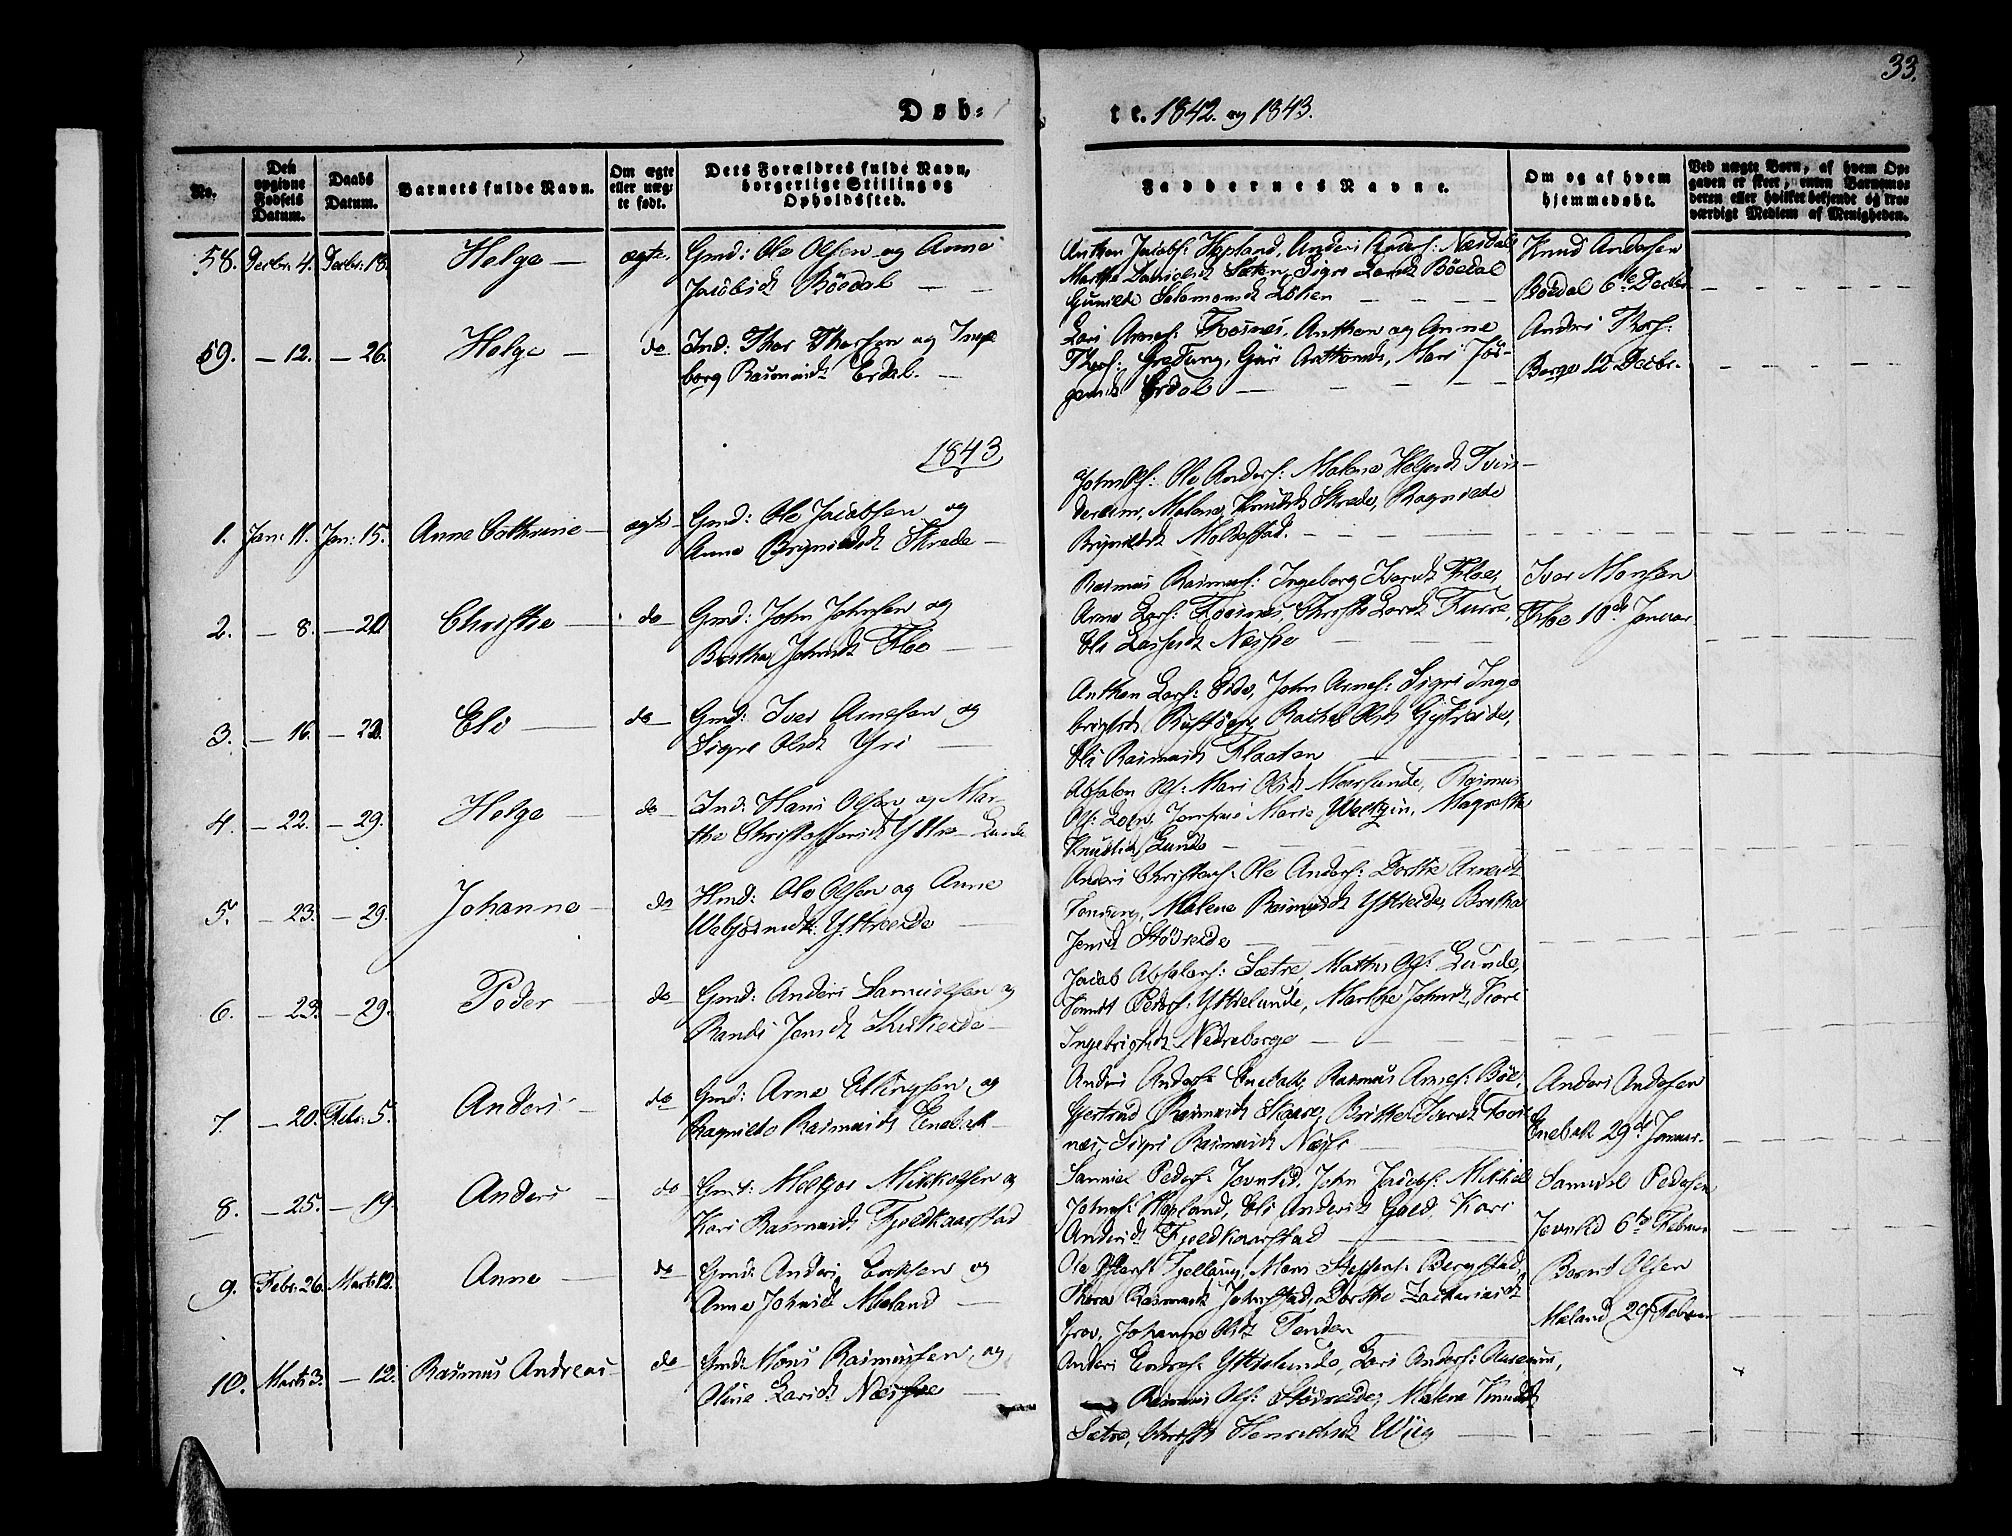 33.
Døb-
te. 1842. og 1843.
No.
Den opgivne Fødsels Datum.
Daabs Datum.
Barnets fulde Navn.
Om ægte eller uægte født.
Dets Forældres fulde Navn, borgerlige Stilling og Opholdssted.
Faddernes Navne.
Om og af hvem hjemmedøbt.
Ved uægte Børn, af hvem Opgaven er skeet, enten Barnemoderen eller hvilket bekjendt og troværdigt Medlem af Menigheden.
58. Decbr: 4. Decbr: 18. Helge ægte. Gmd: Ole Olsen og Anne
Jacobsdt Böedal
Anthon Jacobs: Hopland, Anders Anders: Næsdal
Marthe Danielsdt Sæten, Sigri Larsdt Böedal
Gunilde Salomonsdt Loen
Knud Andersen
Böedal 6te Decbr
59. - 12. - 26. Helge do Ind: Thor Thorsen og Inge
borg Rasmusdt Erdal.
Lars Arnes: Fosnes, Anthon og Anne
Thors: Gretung, Guri Anthonsdt, Mari Jör-
gensdt Erdal
Anders Thors:
Berge 12 Decbr.
1843
1. Jan: 11. Jan: 15. Anne Cathrine ægte Gmd: Ole Jacobsen og
Anne Brynildsdt Skrede
John Ols: Ole Anders: Malene Helgesdt Tvin-
dereim, Malene Knudsdt Skrede, Ragnilde
Brynildsdt Moldestad.
2. - 8. - 20 Christie do Gmd: John Johnsen og
Birthe Johnsdt Floe
Rasmus Rasmus: Ingeborg Ivarsdt Floe,
Arne Lars: Fosnes, Christie Larsdt
Eli Nesje
Ivar Monsen
Floe 10de Januar
3. - 16. - 22. Eli do Gmd: Iver Arnesen og
Sigri Olsdt Yri
Anthon Lars: Eide, John Arnes: Sigri Inge
brigtsdt Rustöen, Rachel Olsdt Gytreeide,
Eli Rasmusdt Flaaten
4. - 22. - 29. Helge do Ind: Hans Olsen og Mar-
the Christoffersdt Ytre Lunde
Absalon Ols: Mari Olsdt Maurlunde, Rasmus
Ols: Loen, Jomfrue Marie, Magrethe
Knudsdt Lunde
5. - 23. - 29. Johanne do Hmd: Ole Olsen og Anne
Webjörnsdt: Yttreeide
Anders Christens: Ole Anders: Dorthe Arnesdt
Tenden, Malene Rasmusdt Yttreeide, Brethe
Jensdt Störeide
6. - 23. - 29. Peder do Gmd: Anders Samuelsen og
Randi Jensdt Skreeide
Jacob Absalons: Sætre, Mathis Ols: Lunde,
Knudt Peders: Yttrelunde, Marthe Johnsdt, Kari
Ingebrigtsdt Nedreberge
7. - 20. Febr: 5. Anders do Gmd: Arne Ellingsen og
Ragnilde Rasmusdt Eneback
Anders Anders: Eneback, Rasmus Arnes: Böe,
Gertrud Rasmusdt Skaare, Brithe Fos-
nes, Sigri Rasmusdt Nesje
Anders Andersen
Eneback 29de Januar.
8. - 25. - 19. Anders do Gmd: Melkior Mikkelsen og
Kari Rasmusdt Fjeldkaarstad
Samuel Peders: Jevnlid, John Jacobs: Mikkel
Johns: Hopland, Eli Andersdt Gald, Kari
Andersdt Fjeldkaarstad
Samuel Pedersen
Jevnlid 6te Februar
9. Febr: 26. Marts 12. Anne do Gmd: Anders Eriksen og
Anne Johnsdt Meland
Ole Fjellaug, Mons Steffens: Bergstad,
Thora Rasmusdt Johnstad, Dorthe Zachariasdt
Grov, Johanne Olsdt Tenden
Bernt Olsen
Meland 29 Februar
10. Marts 3. - 12. Rasmus Andreas do Gmd: Mons Rasmussen og
Oline Larsdt Nesje
Anders Endres: Yttrelunde, Lars Anders: Auseim,
Rasmus Ols: Störeide, Malene Knudsdt
Sætre, Christie Henriksdt Wiig